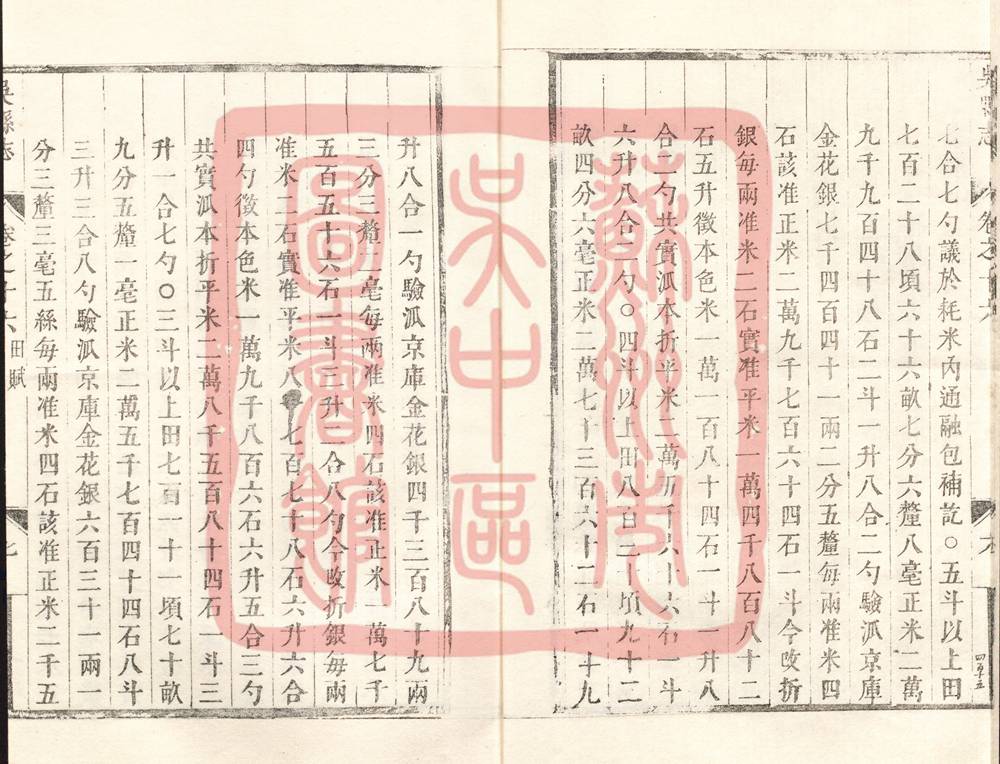 七合七勺議於耗米內通融包補訖○五斗以上田
七百二十八頃六十六畝七分六釐八毫正米二萬
九千九百四十八石二斗一升八合二勺驗派京庫
金花銀七千四百四十一兩二分五釐每兩准米四
石該准正米二萬九千七百六十四石一斗今改折
銀每兩准米二石實准平米一萬四千八百八十二
石五升徵本色米一萬一百八十四石一斗一升八
合二勺共實派本折平米二萬五千六十六石一斗
六升八合二勺○四斗以上田八百二十頃九十二
畝四分六毫正米二萬七千三百六十二石一斗九
升八合一勺驗派京庫金花銀四千三百八十九兩
三分三釐二毫每兩准米四石該准正米一萬七千
五百五十六石一斗三升二合八勺今改折銀每兩
准米二石實准平米八千七百七十八石六升六合
四勺徵本色米一萬九千八百六石六升五合三勺
共實派本折平米二萬八千五百八十四石一斗三
升一合七勺○三斗以上田七百一十一頃七十畝
九分五釐一毫正米二萬五千七百四十四石八斗
三升三合八勺驗派京庫金花銀六百三十一兩一
分三釐三毫五絲每兩准米四石該准正米二千五
吳縣志
卷之十六
田賦
七
蘇州市
吳中區
圖書館